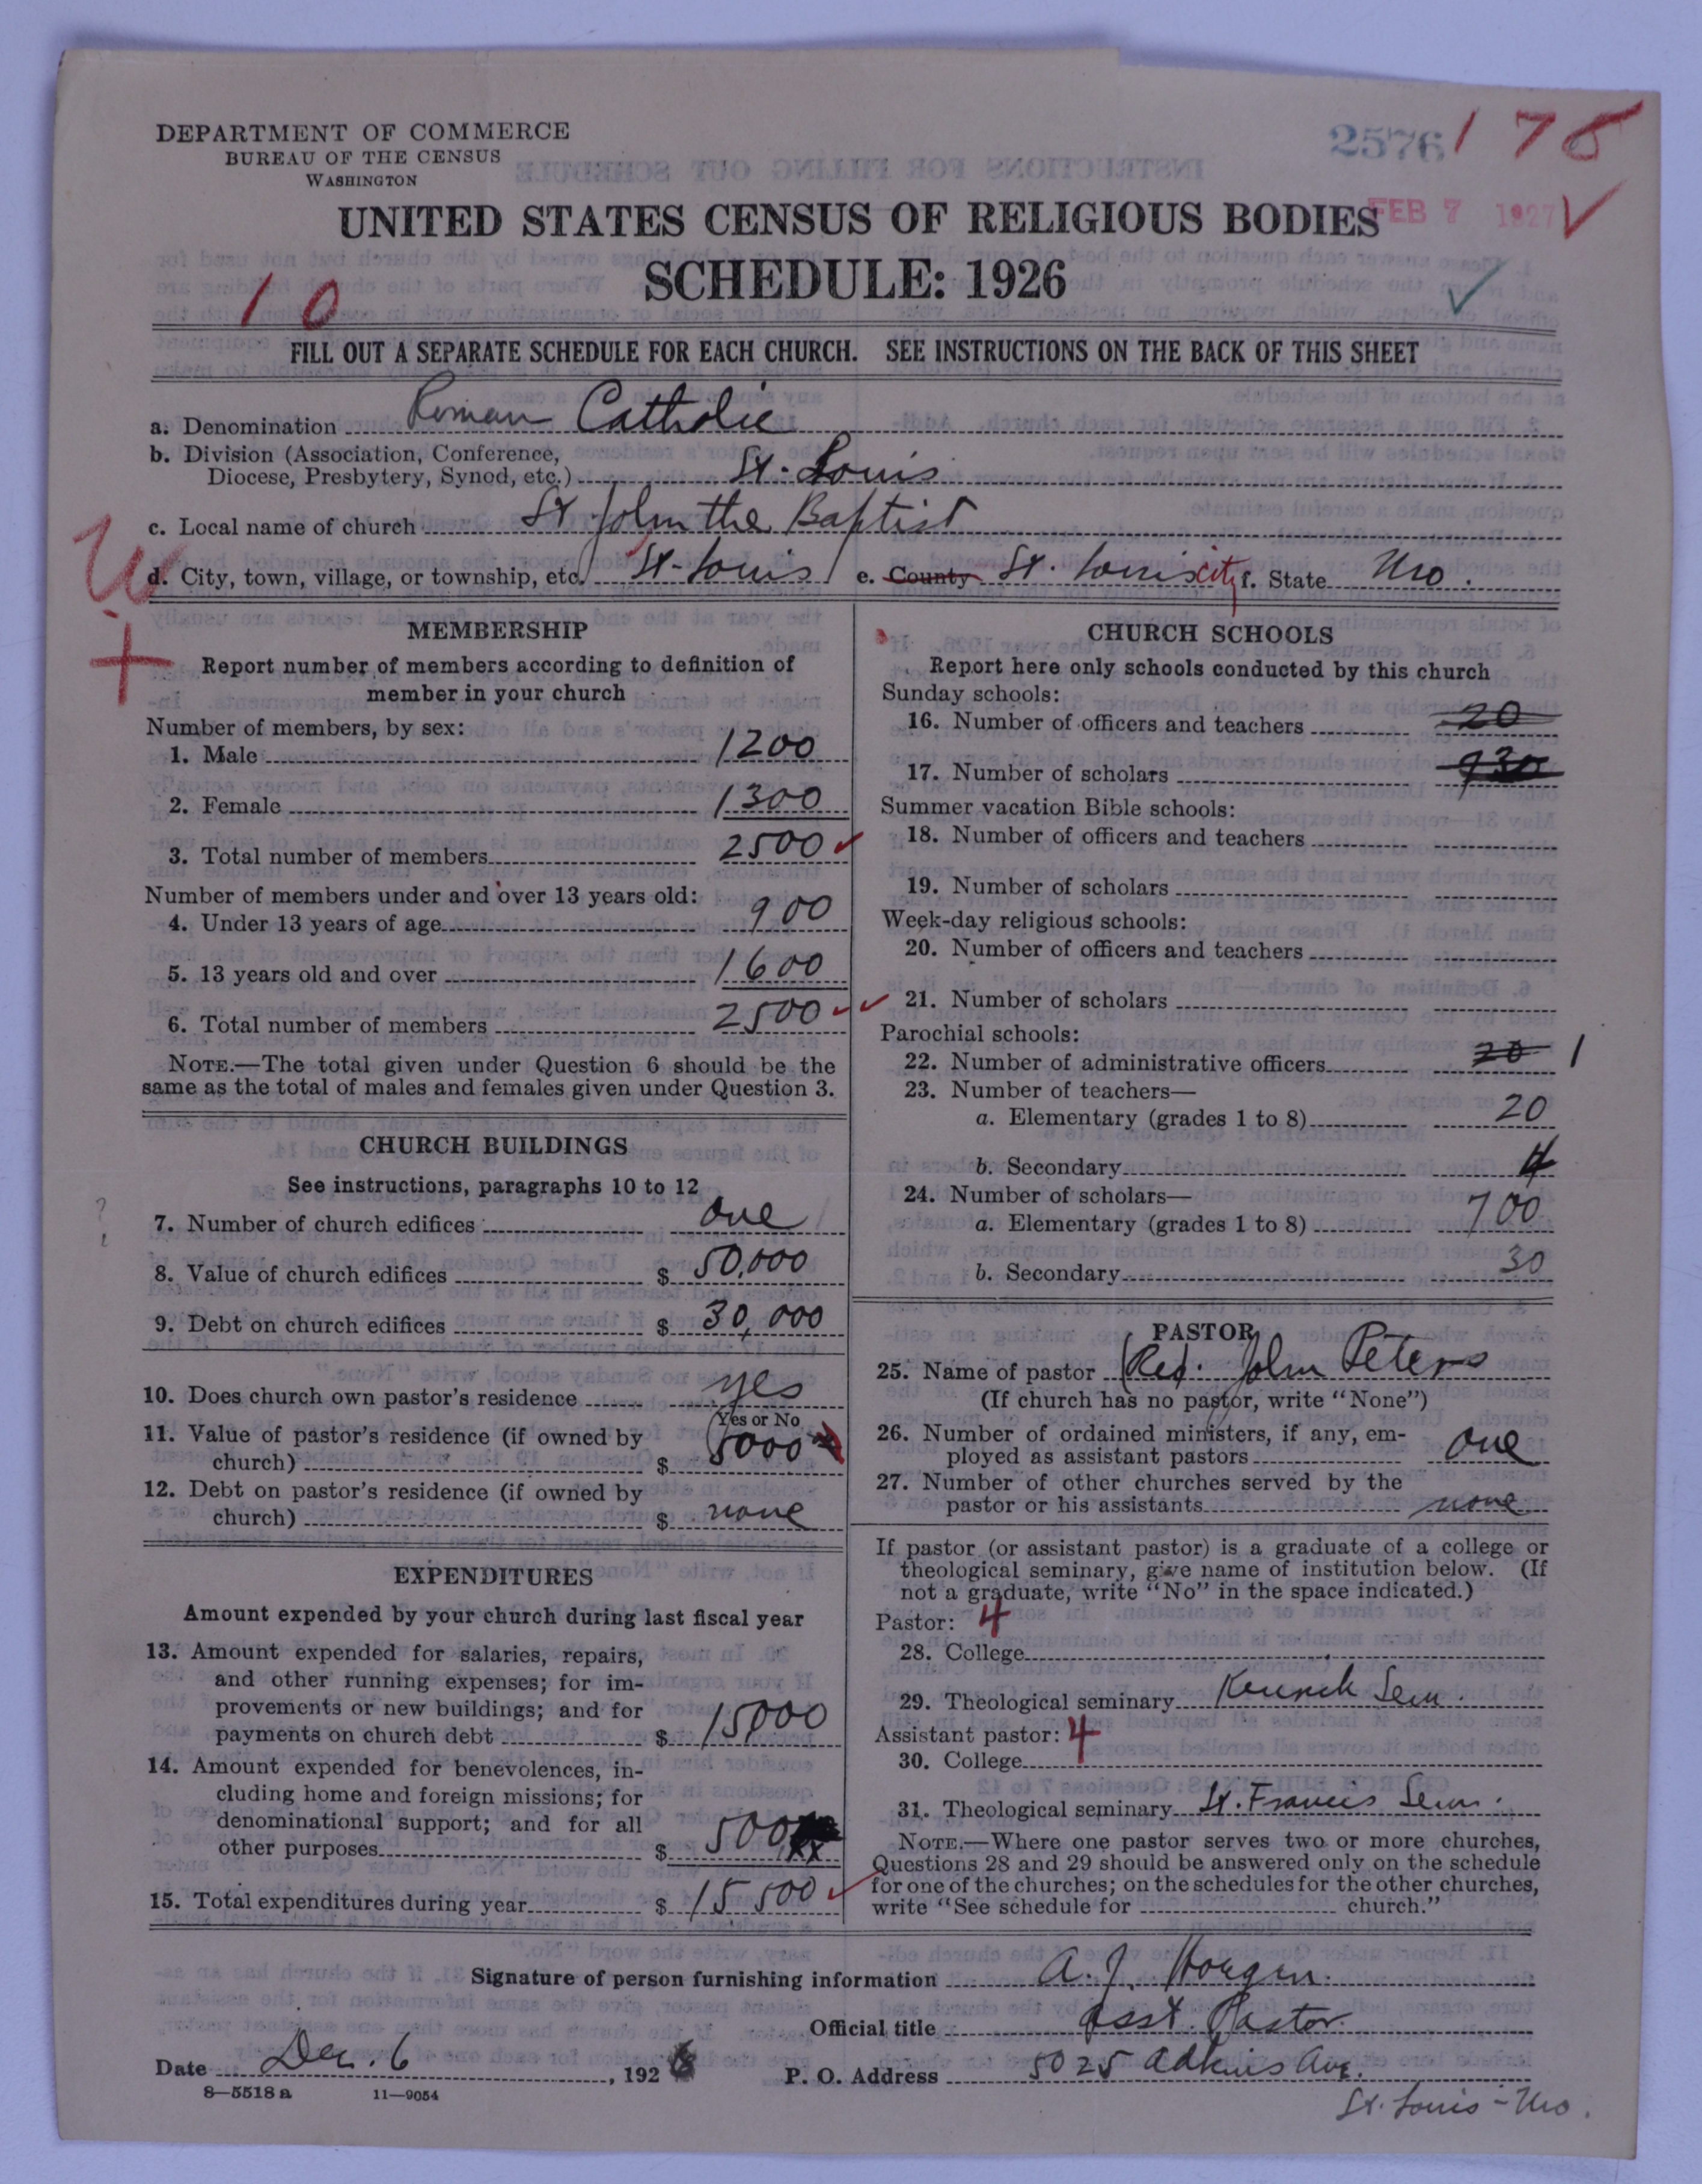 DEPARTMENT OF COMMERCE
BUREAU OF THE CENSUS
WASHINGTON
2576
178
UNITED STATES CENSUS OF RELIGIOUS BODIES
FEB 7 1927
SCHEDULE: 1926
10
FILL OUT A SEPARATE SCHEDULE FOR EACH CHURCH. SEE INSTRUCTIONS ON THE BACK OF THIS SHEET
a. Denomination Roman Catholic
b. Division (Association, Conference,
Diocese, Presbytery, Synod, etc.) St. Louis
c. Local name of church St John the Baptist
d. City, town, village, or township, etc. St-Louis e. County St. Louis city f. State Mo.
MEMBERSHIP
Report number of members according to definition of
member in your church
Number of members, by sex:
1. Male 1200
2. Female 1300
3. Total number of members 2500
Number of members under and over 13 years old:
4. Under 13 years of age 900
5. 13 years old and over 1600
6. Total number of members 2500
NOTE.—The total given under Question 6 should be the
same as the total of males and females given under Question 3.
CHURCH BUILDINGS
See instructions, paragraphs 10 to 12
7. Number of church edifices one
8. Value of church edifices $ 50,000
9. Debt on church edifices $ 30,000
10. Does church own pastor's residence yes
(Yes or No)
11. Value of pastor's residence (if owned by
church) $ 5000
12. Debt on pastor's residence (if owned by
church) $ none
EXPENDITURES
Amount expended by your church during last fiscal year
13. Amount expended for salaries, repairs,
and other running expenses; for im-
provements or new buildings; and for
payments on church debt $ 15000
14. Amount expended for benevolences, in-
cluding home and foreign missions; for
denominational support; and for all
other purposes $ 500
15. Total expenditures during year $ 15500
CHURCH SCHOOLS
Report here only schools conducted by this church
Sunday schools:
16. Number of officers and teachers 20
17. Number of scholars 930
Summer vacation Bible schools:
18. Number of officers and teachers
19. Number of scholars
Week-day religious schools:
20. Number of officers and teachers
21. Number of scholars
Parochial schools:
22. Number of administrative officers 20 1
23. Number of teachers—
a. Elementary (grades 1 to 8) 20
b. Secondary 4
24. Number of scholars—
a. Elementary (grades 1 to 8) 700
b. Secondary 30
PASTOR
25. Name of pastor (Rev. John Peters
(If church has no pastor, write "None")
26. Number of ordained ministers, if any, em-
ployed as assistant pastors one
27. Number of other churches served by the
pastor or his assistants none
If pastor (or assistant pastor) is a graduate of a college or
theological seminary, give name of institution below. (If
not a graduate, write "No" in the space indicated.)
Pastor: 4
28. College
29. Theological seminary Kenrick Sem.
Assistant pastor: 4
30. College
31. Theological seminary St. Francis Sem.
NOTE.—Where one pastor serves two or more churches,
Questions 28 and 29 should be answered only on the schedule
for one of the churches; on the schedules for the other churches,
write "See schedule for church."
Signature of person furnishing information A. J.
Official title Asst. Pastor
Date Dec. 6, 1926 P. O. Address 5025 Adkins Ave.
St. Louis - Mo.
8—5518 a 11—9054